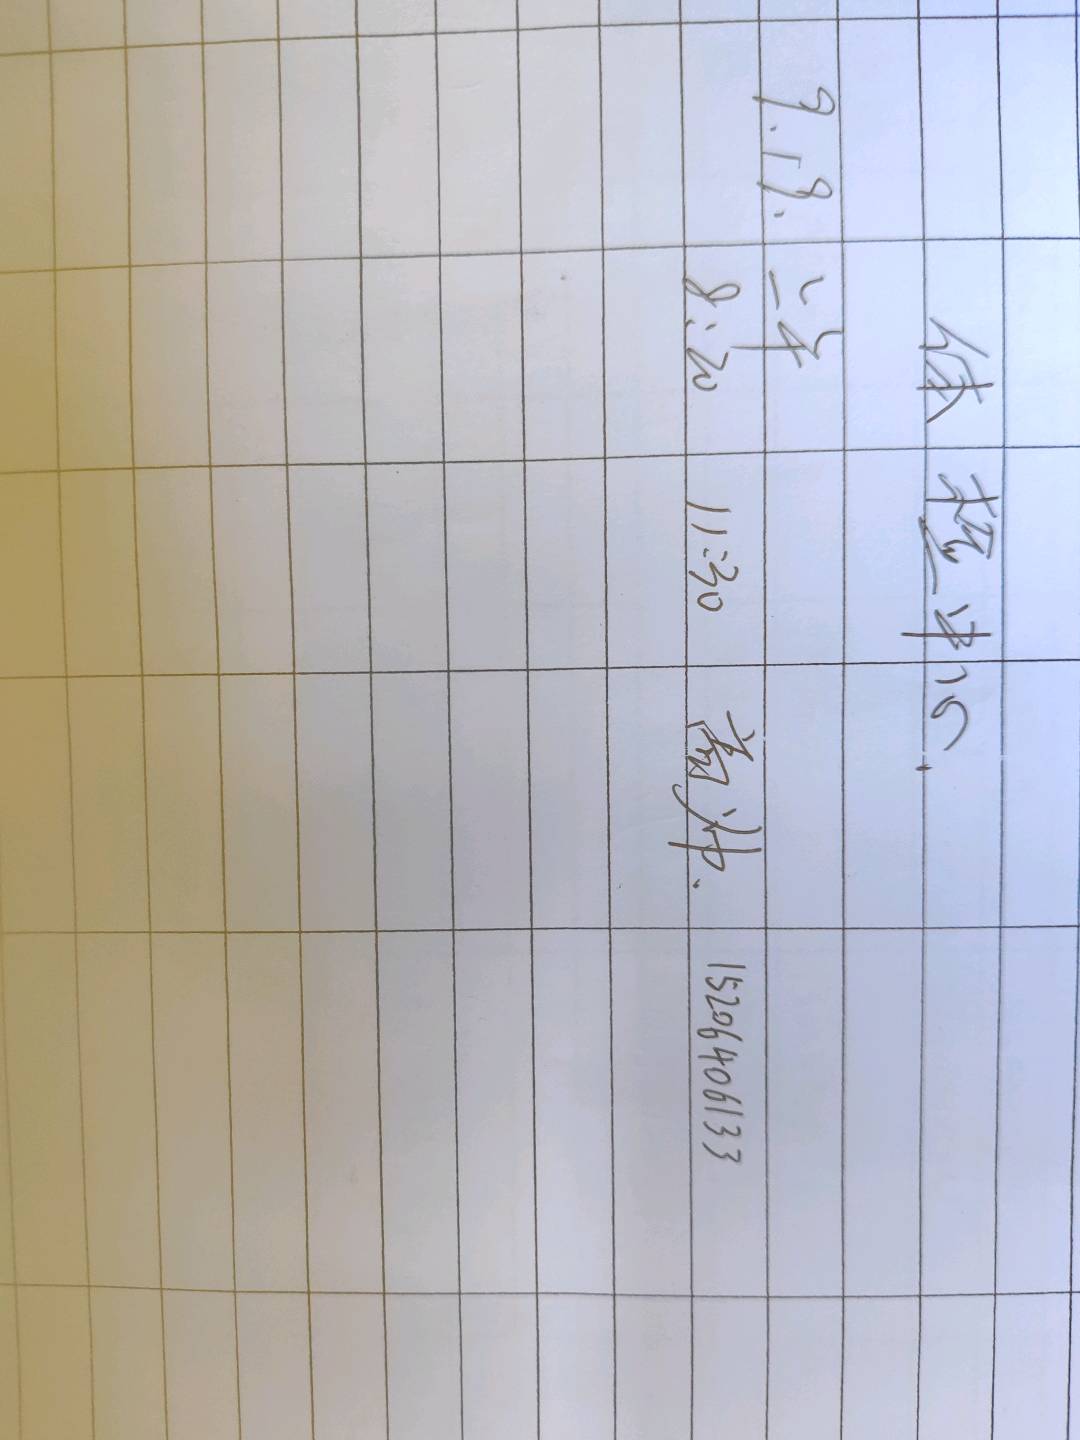 体检中心.
9.19. 上午
8:20 11:30 高冲. 15206406133